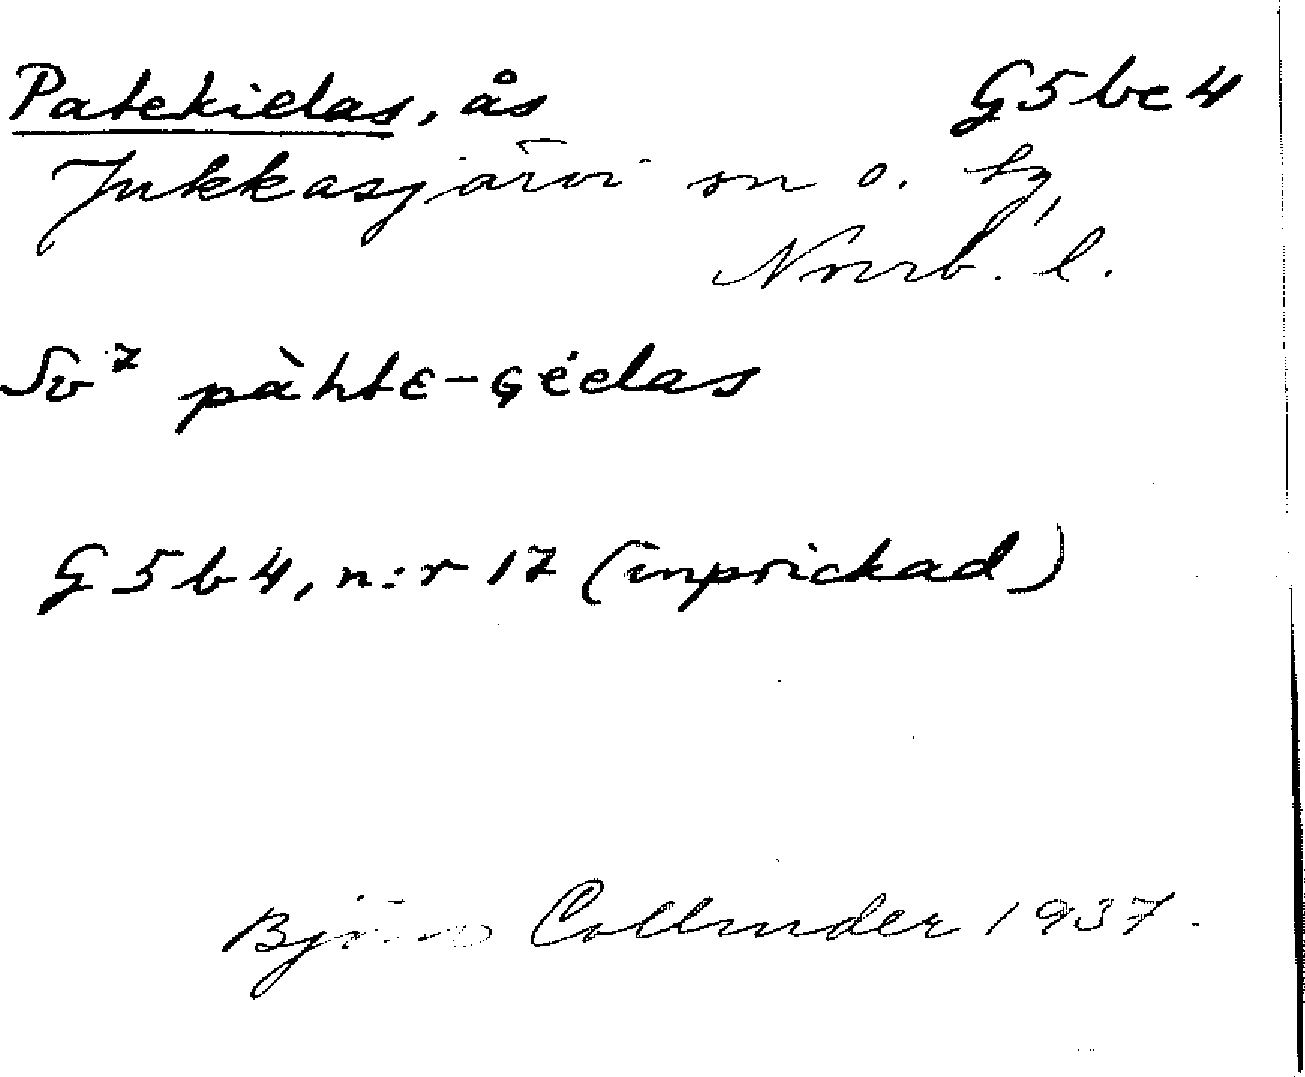 Patekielas, ås G5bc4
Jukkasjärvi sn o. tg,
Norrb. l.
Sv 7 pàhtɛ-Géelas
G5b4, n:r 17 (inprickad)
Björn Collinder 1937.